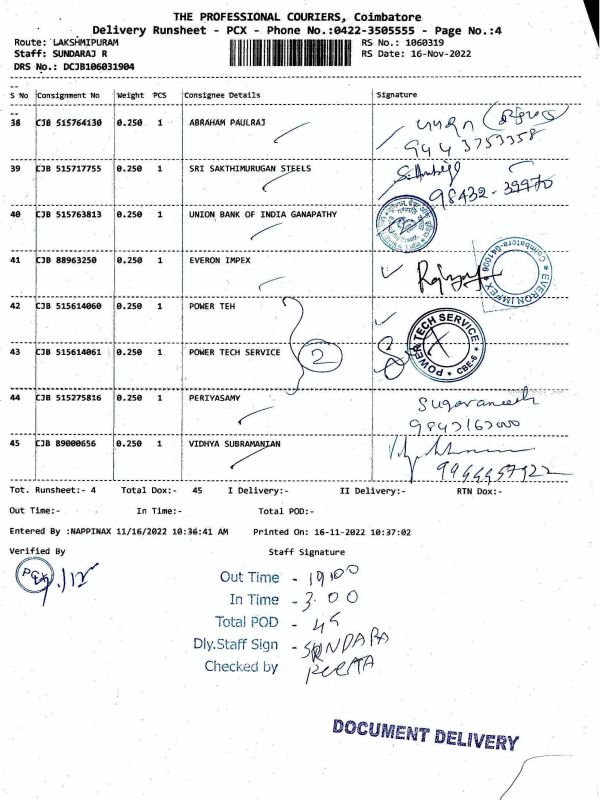 THE PROFESSIONAL COURIERS, Coimbatore
Delivery Runsheet - PCX - Phone No.:0422-3505555 - Page No.:4
Route: LAKSHMIPURAM RS No.: 1060319
Staff: SUNDARAJ R RS Date: 16-Nov-2022
DRS No.: DCJB106031904
S No Consignment No Weight PCS Consignee Details Signature
38 CJB 515764130 0.250 1 ABRAHAM PAULRAJ
944 3753358
39 CJB 515717755 0.250 1 SRI SAKTHIMURUGAN STEELS
98432-39970
40 CJB 515763813 0.250 1 UNION BANK OF INDIA GANAPATHY
41 CJB 88963250 0.250 1 EVERON IMPEX
EVERON IMPEX Coimbatore-641006
42 CJB 515614060 0.250 1 POWER TEH
43 CJB 515614061 0.250 1 POWER TECH SERVICE 2
POWER TECH SERVICE CBE-6
44 CJB 515275816 0.250 1 PERIYASAMY Sugavaneesh
9842162000
45 CJB 89000656 0.250 1 VIDHYA SUBRAMANIAN
9944457922
Tot. Runsheet:- 4 Total Dox:- 45 I Delivery:- II Delivery:- RTN Dox:-
Out Time:- In Time:- Total POD:-
Entered By :NAPPINAX 11/16/2022 10:36:41 AM Printed On: 16-11-2022 10:37:02
Verified By Staff Signature
PCX
Out Time - 10:00
In Time - 3.00
Total POD - 45
Dly.Staff Sign - SUNDARA
Checked by
DOCUMENT DELIVERY